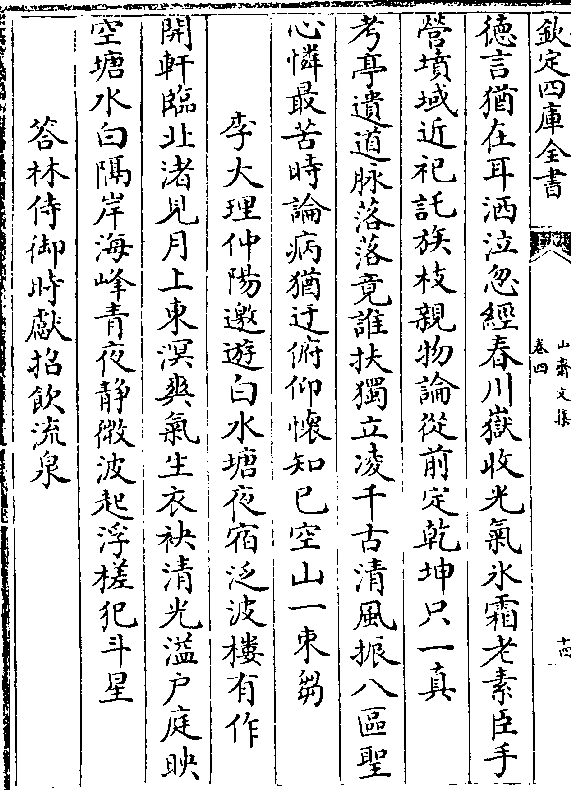 欽定四庫全書
山齋文集
卷四
十四
德言猶在耳洒泣忽經春川嶽收光氣氷霜老素臣手
營墳域近祀託族枝親物論從前定乾坤只一真
考亭遺道脉落落竟誰扶獨立凌千古清風振八區聖
心憐最苦時論病猶迂俯仰懷知己空山一束芻
李大理仲陽邀遊白水塘夜宿泛波樓有作
開軒臨北渚見月上東溟爽氣生衣袂清光溢戶庭映
空塘水白隔岸海峰青夜靜微波起浮槎犯斗星
答林侍御時獻招飲流泉